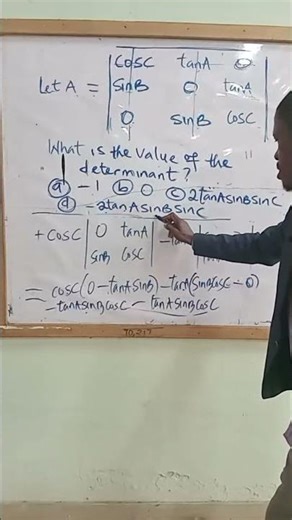 Let A = | cosC tanA 0 |
| sinB 0 tanA |
| 0 sinB cosC |
What is the value of the
determinant?
(a) -1 (b) 0 (c) 2tanAsinBsinC
(d) -2tanAsinBsinC
+ cosC | 0 tanA |
| sinB cosC |
= cosC(0-tanAsinB)-tanA(sinBcosC-0)
-tanAsinBcosC - tanAsinBcosC